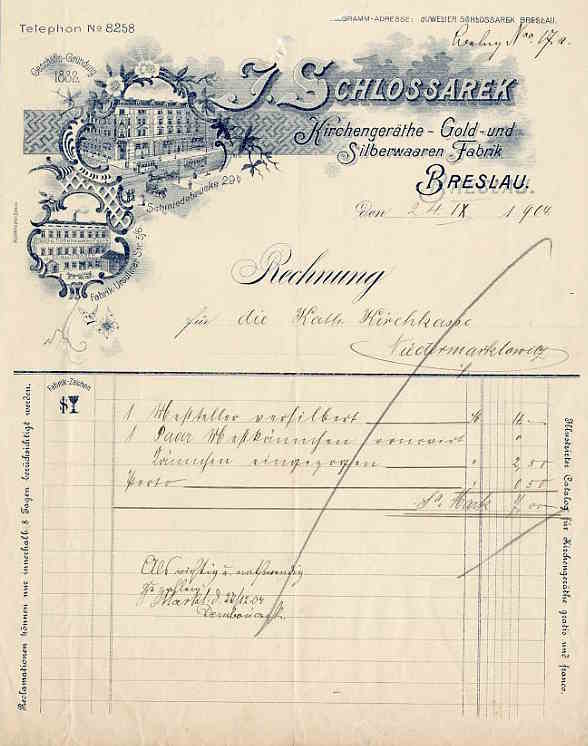 Telephon No 8258
GRAMM-ADRESSE: JUWELIER SCHLOSSAREK BRESLAU.
Geschäfts-Gründung
1882.
J. SCHLOSSAREK
Kirchengeräthe - Gold - und
Silberwaaren - Fabrik
BRESLAU.
Schmiedebrücke 29b
Fabrik: Ursuliner Str. 5/6
den 24. IX 1904
Rechnung
für die Kath. Kirchkasse
Niedermarklowitz
Fabrik-Zeichen
1 Messteller versilbert
1 Paar Messkännchen renovirt
Kännchen eingezogen 2,50
Porto 0 50
Sa. Mark
Als richtig u. nothwendig
Markl. d. 22/12.04
Reclamationen können nur innerhalb 8 Tagen berücksichtigt werden.
Illustrirter Catalog für Kirchengeräthe gratis und franco.